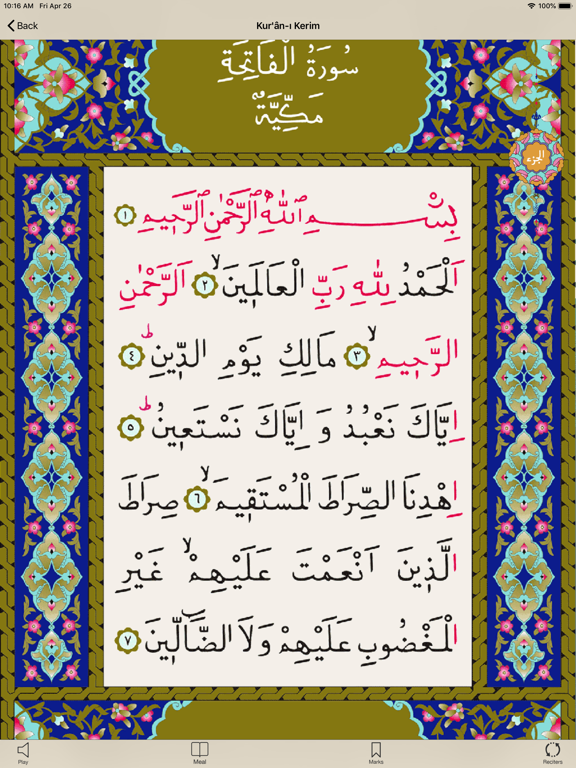 10:16 AM Fri Apr 26 100%
Back Kur'ân-ı Kerim
سُورَةُ الْفَاتِحَةِ
مَكِّيَّةٌ
الجزء
بِسْمِ اللّٰهِ الرَّحْمٰنِ الرَّحٖيمِ ١
اَلْحَمْدُ لِلّٰهِ رَبِّ الْعَالَمٖينَۙ ٢ اَلرَّحْمٰنِ
الرَّحٖيمِۙ ٣ مَالِكِ يَوْمِ الدّٖينِؕ ٤
اِيَّاكَ نَعْبُدُ وَ اِيَّاكَ نَسْتَعٖينُؕ ٥
اِهْدِنَا الصِّرَاطَ الْمُسْتَقٖيمَۙ ٦ صِرَاطَ
الَّذٖينَ اَنْعَمْتَ عَلَيْهِمْۙ غَيْرِ
الْمَغْضُوبِ عَلَيْهِمْ وَلَا الضَّٓالّٖينَ ٧
Play Meal Marks Reciters